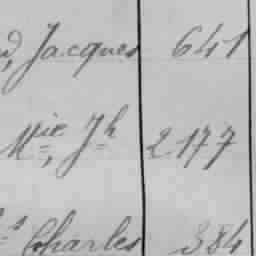 Jacques 641
Mie, Jh 2177
Charles 384